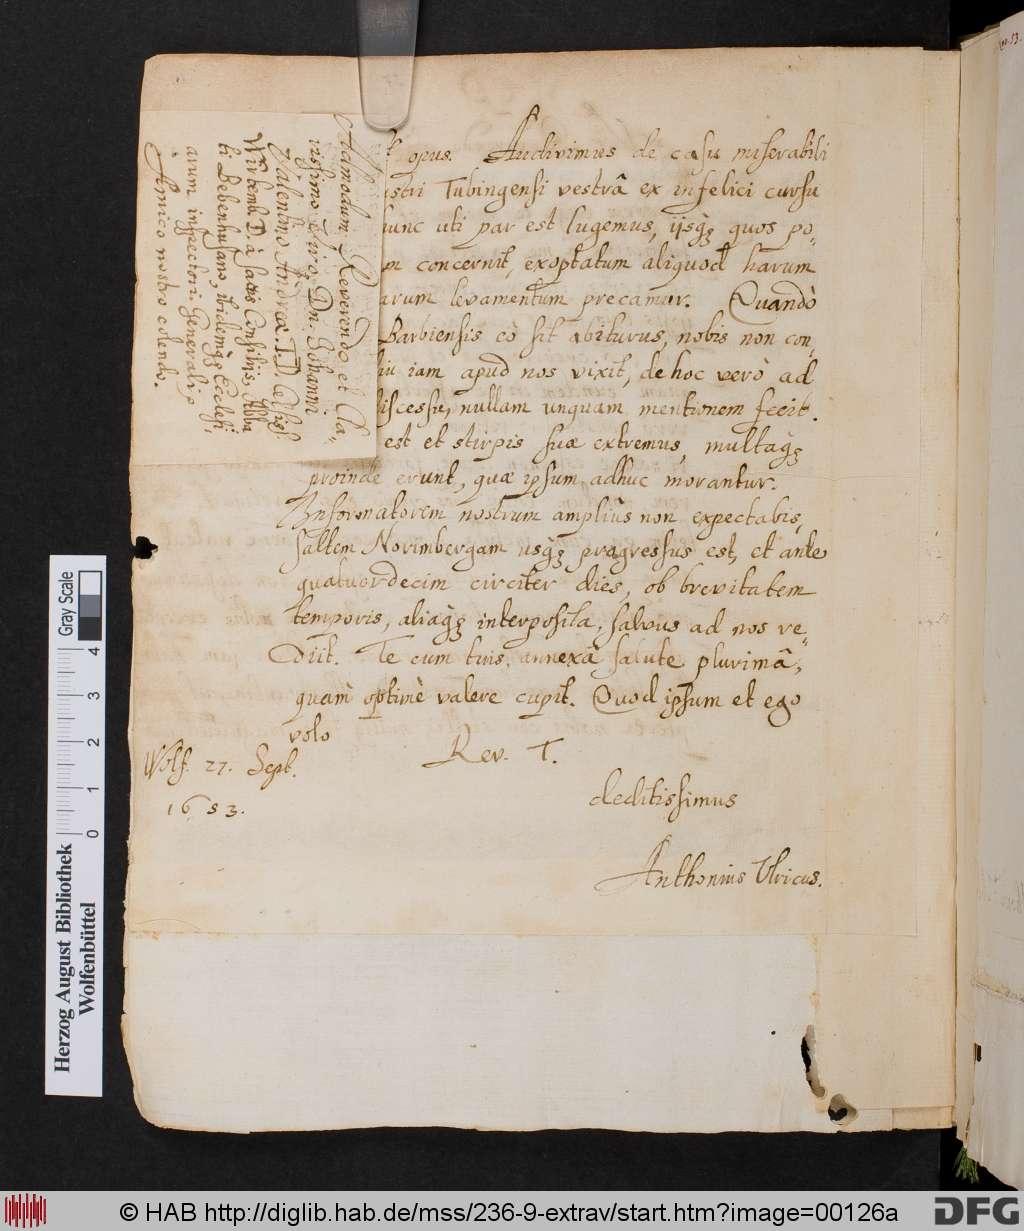 opus. Audivimus de casu miserabili
Tubingensi vestrâ ex infelici cursu
nunc uti par est lugemus, ijsq₃ quos po,
concernit, exoptatum aliquod harum
arum levamentum precamur. Quandò
Barbiensis eò sit abiturus, nobis non con,
iam apud nos vixit, de hoc verò ad
discessu, nullam unquam mentionem fecit.
est et stirpis suæ extremus, multaq₃
proinde erunt, quæ ipsum adhuc morantur.
Informatorem nostrum ampliùs non expectabis,
saltem Norimbergam usq₃ progressus est, et ante
quatuordecim circiter dies, ob brevitatem
temporis, aliaq₃ interposita, salvus ad nos re,
diit. Te cum tuis, annexâ salute plurimâ,
quàm optimè valere cupit. Quod ipsum et ego
volo
Rev. T.
Wolf. 27. Sept.
1653.
deditissimus
Anthonius Ulricus.
Admodum Reverendo et Cla,
rissimo Viro, Dn. Johanni
Valentino Andreæ. TD. Celsiss.
Wirtemb. D. à sacris Consilijs, Abba
ti Bebenhusano, ibidemq₃ Ecclesi,
arum inspectori Generali,
Amico nostro colendo.
Herzog August Bibliothek
Wolfenbüttel
Gray Scale
0 1 2 3 4
© HAB http://diglib.hab.de/mss/236-9-extrav/start.htm?image=00126a
DFG